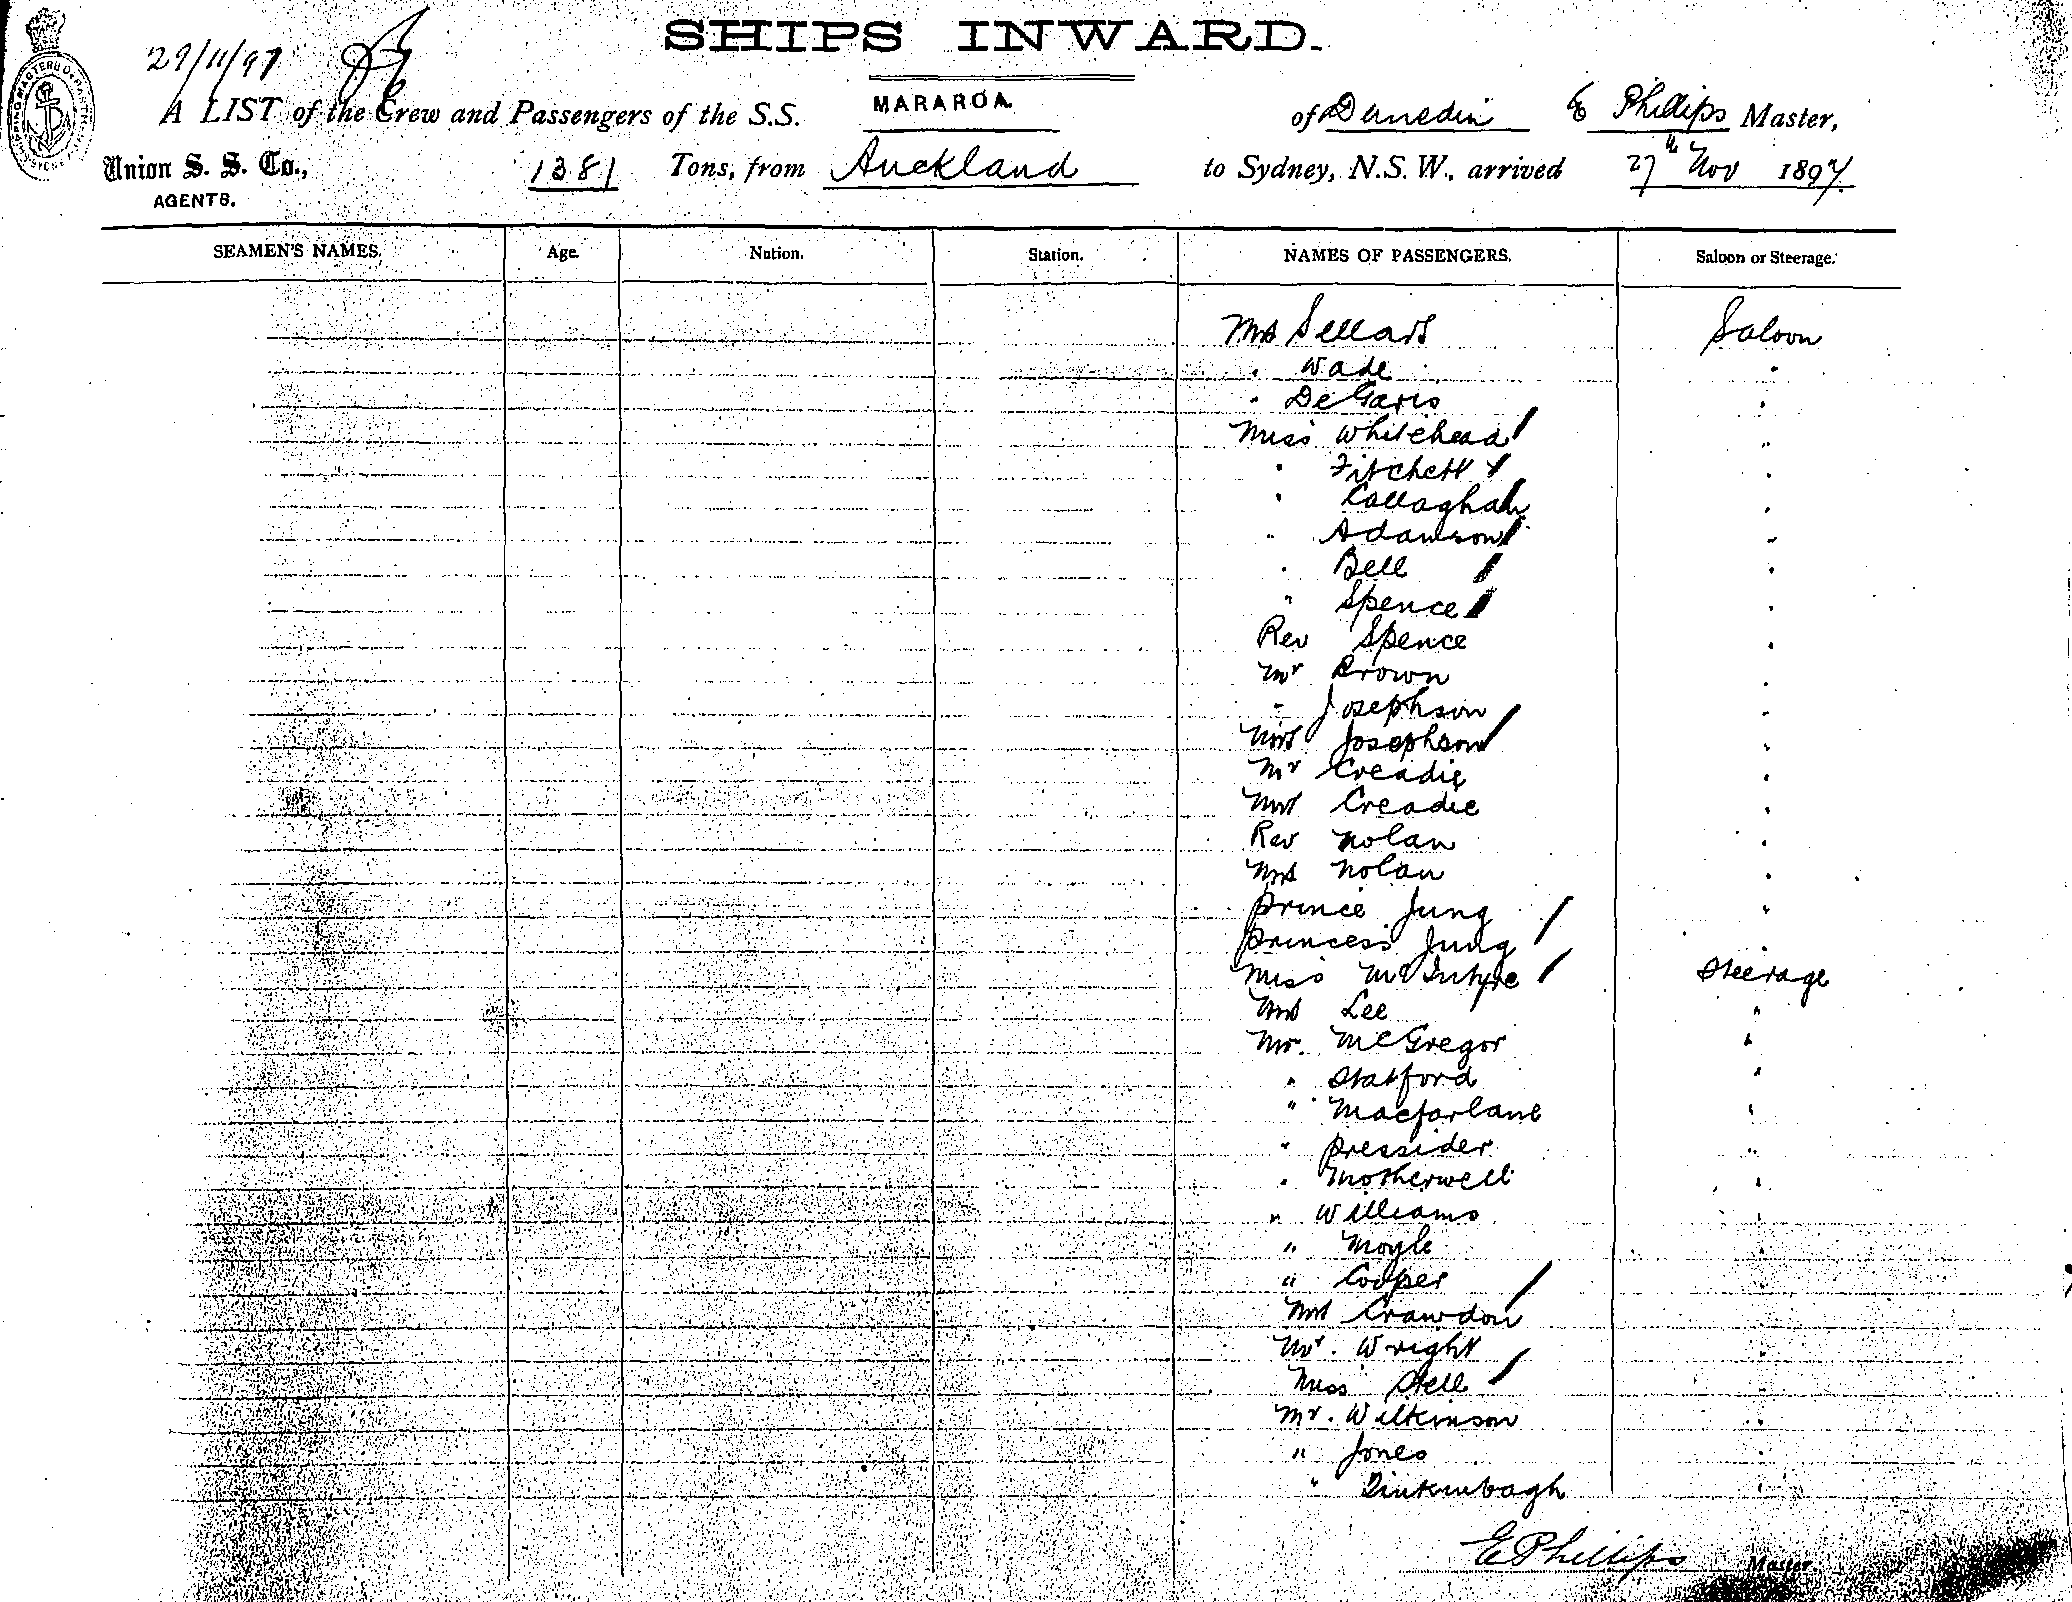 SHIPS INWARD.
29/11/97
A LIST of the Crew and Passengers of the S.S. MARAROA of Dunedin E Phillips Master,
Union S. S. Co., 1381 Tons, from Auckland to Sydney, N.S.W., arrived 27th Nov 1897.
AGENTS.
SEAMEN'S NAMES. Age. Nation. Station. NAMES OF PASSENGERS. Saloon or Steerage.
Mrs Sellars Saloon
" Wade "
" DeGaris "
Miss Whitehead "
" Fitchett "
" Callaghan "
" Adamson "
" Bell "
" Spence "
Rev Spence "
Mr Brown "
" Josephson "
Mrs Josephson "
Mr Creadie "
Mrs Creadie "
Rev Nolan "
Mrs Nolan "
Prince Jung "
Princess Jung "
Miss McIntyre Steerage
Mrs Lee "
Mr. McGregor "
" Statford "
" Macfarlane "
" Pressider "
" Motherwell "
" Williams "
" Moyle "
" Cooper "
Mrs Crawdon "
Mr. Wright "
Miss Stell "
Mr. Wilkinson "
" Jones "
"
E Phillips Master